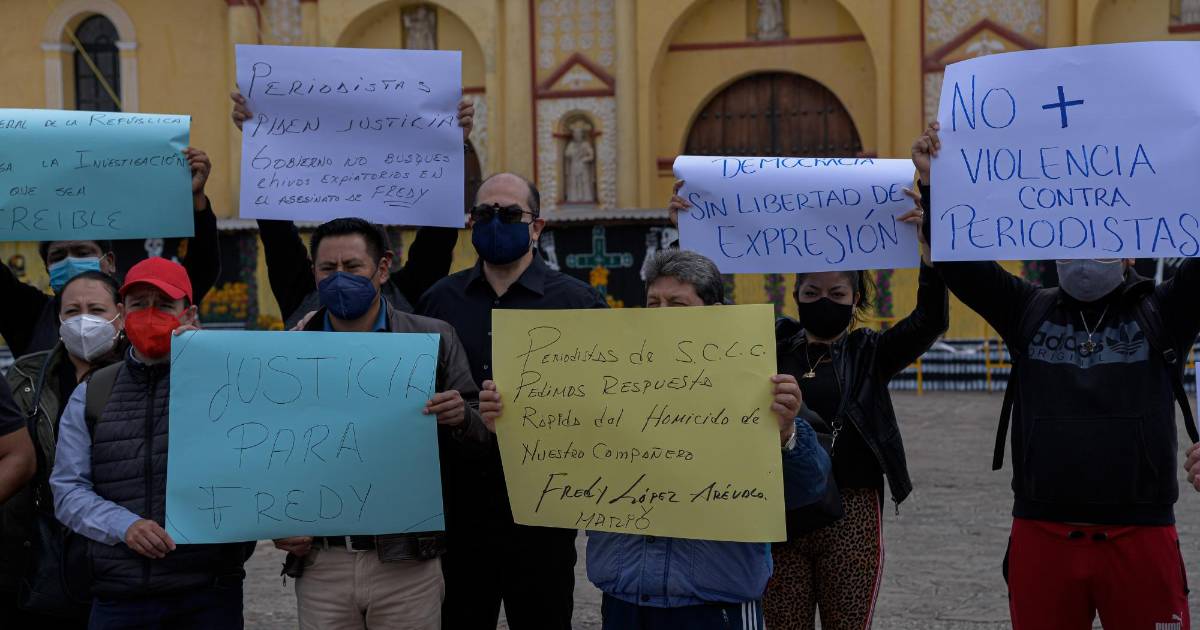 ERAL DE LA REPÚBLICA
LA INVESTIGACIÓN
QUE SEA
CREIBLE
PERIODISTAS
PIDEN JUSTICIA
GOBIERNO NO BUSQUES
CHIVOS EXPIATORIOS EN
EL ASESINATO DE FREDY
DEMOCRACIA
SIN LIBERTAD DE
EXPRESIÓN
NO +
VIOLENCIA
CONTRA
PERIODISTAS
JUSTICIA
PARA
FREDY
Periodistas de S.C.L.C.
Pedimos Respuesta
Rápida del Homicidio de
Nuestro Compañero
Fredy López Arévalo.
adidas
ORIGINAL
PUMA